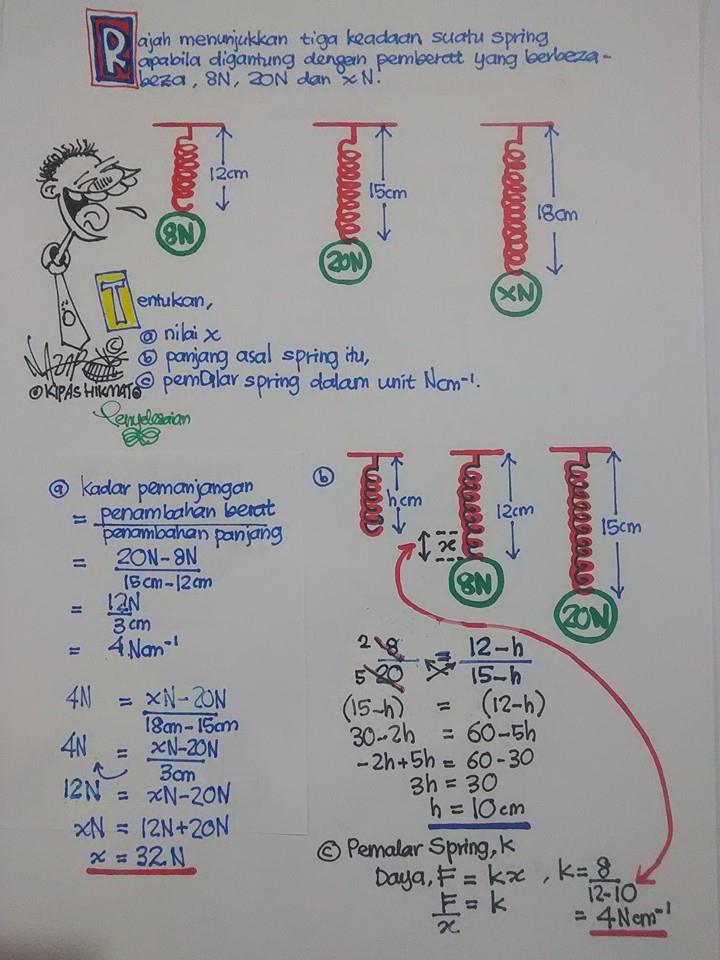 Rajah menunjukkan tiga keadaan suatu spring
apabila digantung dengan pemberat yang berbeza-
beza, 8N, 20N dan xN.
12cm
15cm
18cm
8N
20N
XN
Tentukan,
ⓐ nilai x
ⓑ panjang asal spring itu,
ⓒ pemalar spring dalam unit Ncm⁻¹.
©
©KIPASHIKMAT©
Penyelesaian
ⓐ kadar pemanjangan
= penambahan berat
penambahan panjang
= 20N-8N
15cm-12cm
= 12N
3cm
= 4Ncm⁻¹
4N = xN-20N
18cm-15cm
4N = xN-20N
3cm
12N = xN-20N
xN = 12N+20N
x = 32N
ⓑ
hcm
12cm
15cm
x
8N
20N
2 8 = 12-h
5 20 15-h
(15-h) = (12-h)
30-2h = 60-5h
-2h+5h = 60-30
3h = 30
h = 10cm
ⓒ Pemalar Spring, k
Daya, F = kx , k = 8
12-10
F = k
x
= 4Ncm⁻¹